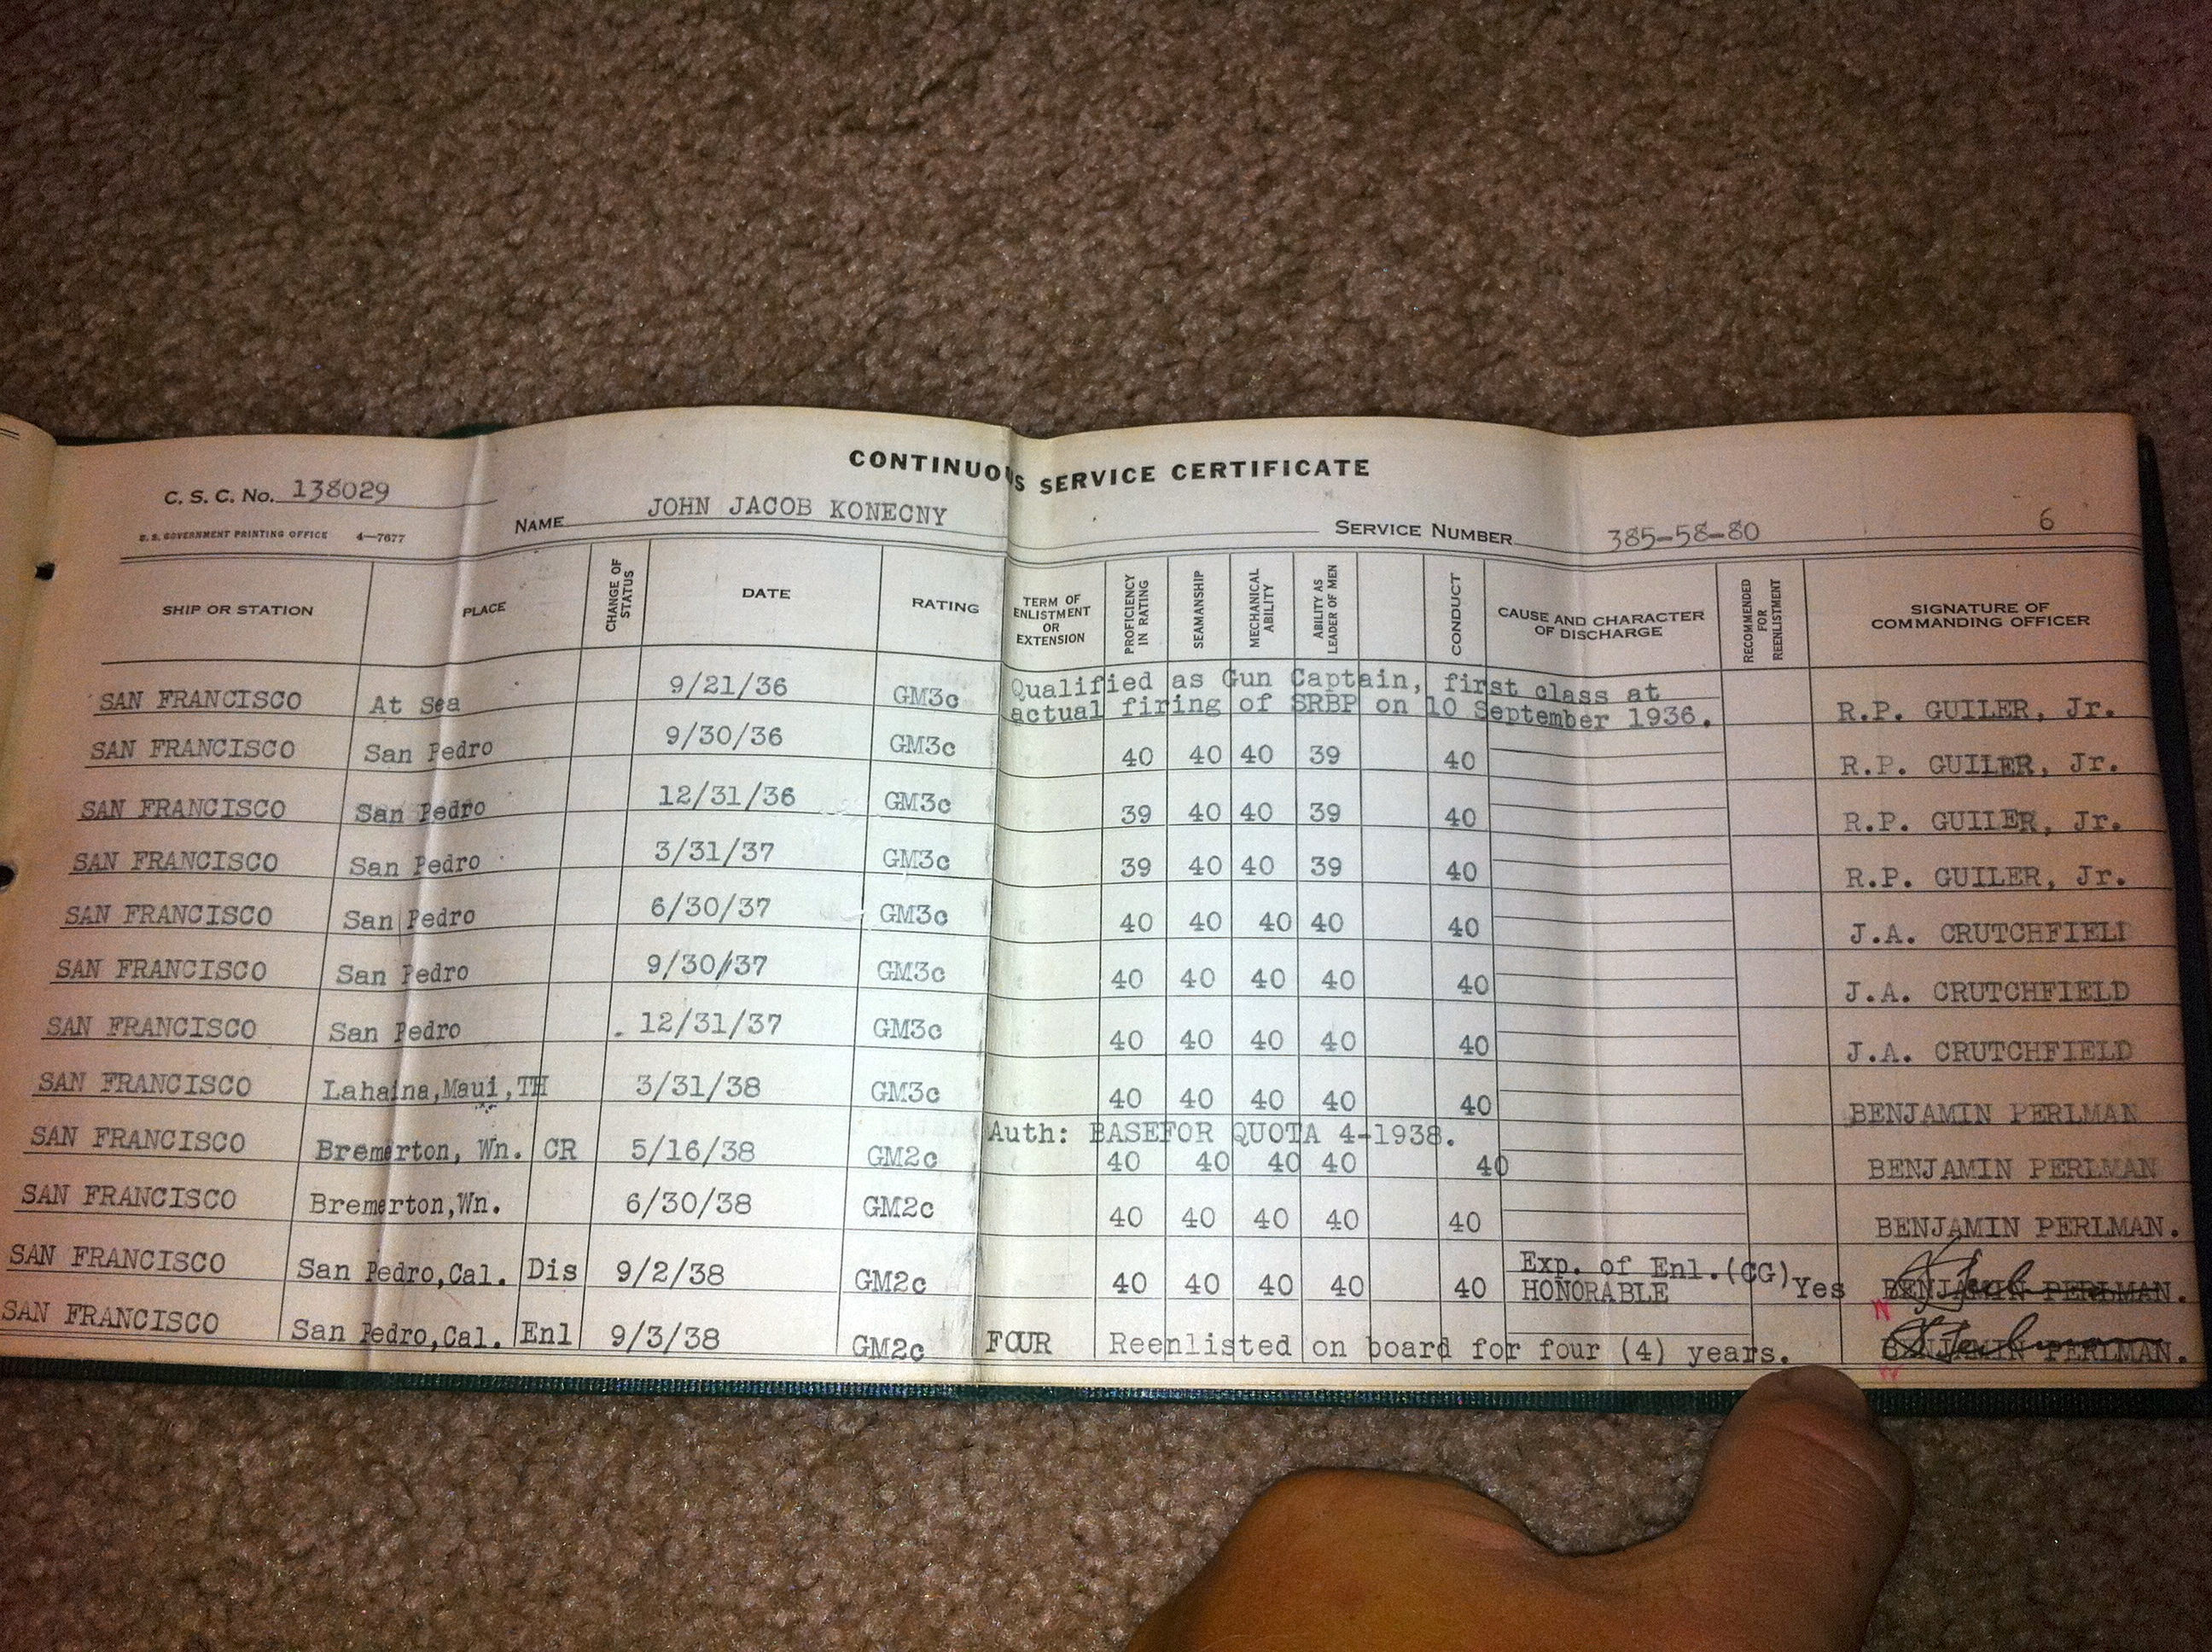 CONTINUOUS SERVICE CERTIFICATE
C. S. C. No. 138029
U. S. GOVERNMENT PRINTING OFFICE 4—7677
NAME JOHN JACOB KONECNY SERVICE NUMBER 385-58-80 6
SHIP OR STATION PLACE CHANGE OF STATUS DATE RATING TERM OF ENLISTMENT OR EXTENSION PROFICIENCY IN RATING SEAMANSHIP MECHANICAL ABILITY ABILITY AS LEADER OF MEN CONDUCT CAUSE AND CHARACTER OF DISCHARGE RECOMMENDED FOR REENLISTMENT SIGNATURE OF COMMANDING OFFICER
SAN FRANCISCO At Sea 9/21/36 GM3c Qualified as Gun Captain, first class at
actual firing of SRBP on 10 September 1936. R.P. GUILER, Jr.
SAN FRANCISCO San Pedro 9/30/36 GM3c 40 40 40 39 40 R.P. GUILER, Jr.
SAN FRANCISCO San Pedro 12/31/36 GM3c 39 40 40 39 40 R.P. GUILER, Jr.
SAN FRANCISCO San Pedro 3/31/37 GM3c 39 40 40 39 40 R.P. GUILER, Jr.
SAN FRANCISCO San Pedro 6/30/37 GM3c 40 40 40 40 40 J.A. CRUTCHFIELD
SAN FRANCISCO San Pedro 9/30/37 GM3c 40 40 40 40 40 J.A. CRUTCHFIELD
SAN FRANCISCO San Pedro 12/31/37 GM3c 40 40 40 40 40 J.A. CRUTCHFIELD
SAN FRANCISCO Lahaina,Maui,TH 3/31/38 GM3c 40 40 40 40 40 BENJAMIN PERLMAN
Auth: BASEFOR QUOTA 4-1938.
SAN FRANCISCO Bremerton, Wn. CR 5/16/38 GM2c 40 40 40 40 40 BENJAMIN PERLMAN
SAN FRANCISCO Bremerton,Wn. 6/30/38 GM2c 40 40 40 40 40 BENJAMIN PERLMAN.
Exp. of Enl.(CG)
SAN FRANCISCO San Pedro,Cal. Dis 9/2/38 GM2c 40 40 40 40 40 HONORABLE Yes BENJAMIN PERLMAN.
SAN FRANCISCO San Pedro,Cal. Enl 9/3/38 GM2c FOUR Reenlisted on board for four (4) years. BENJAMIN PERLMAN.